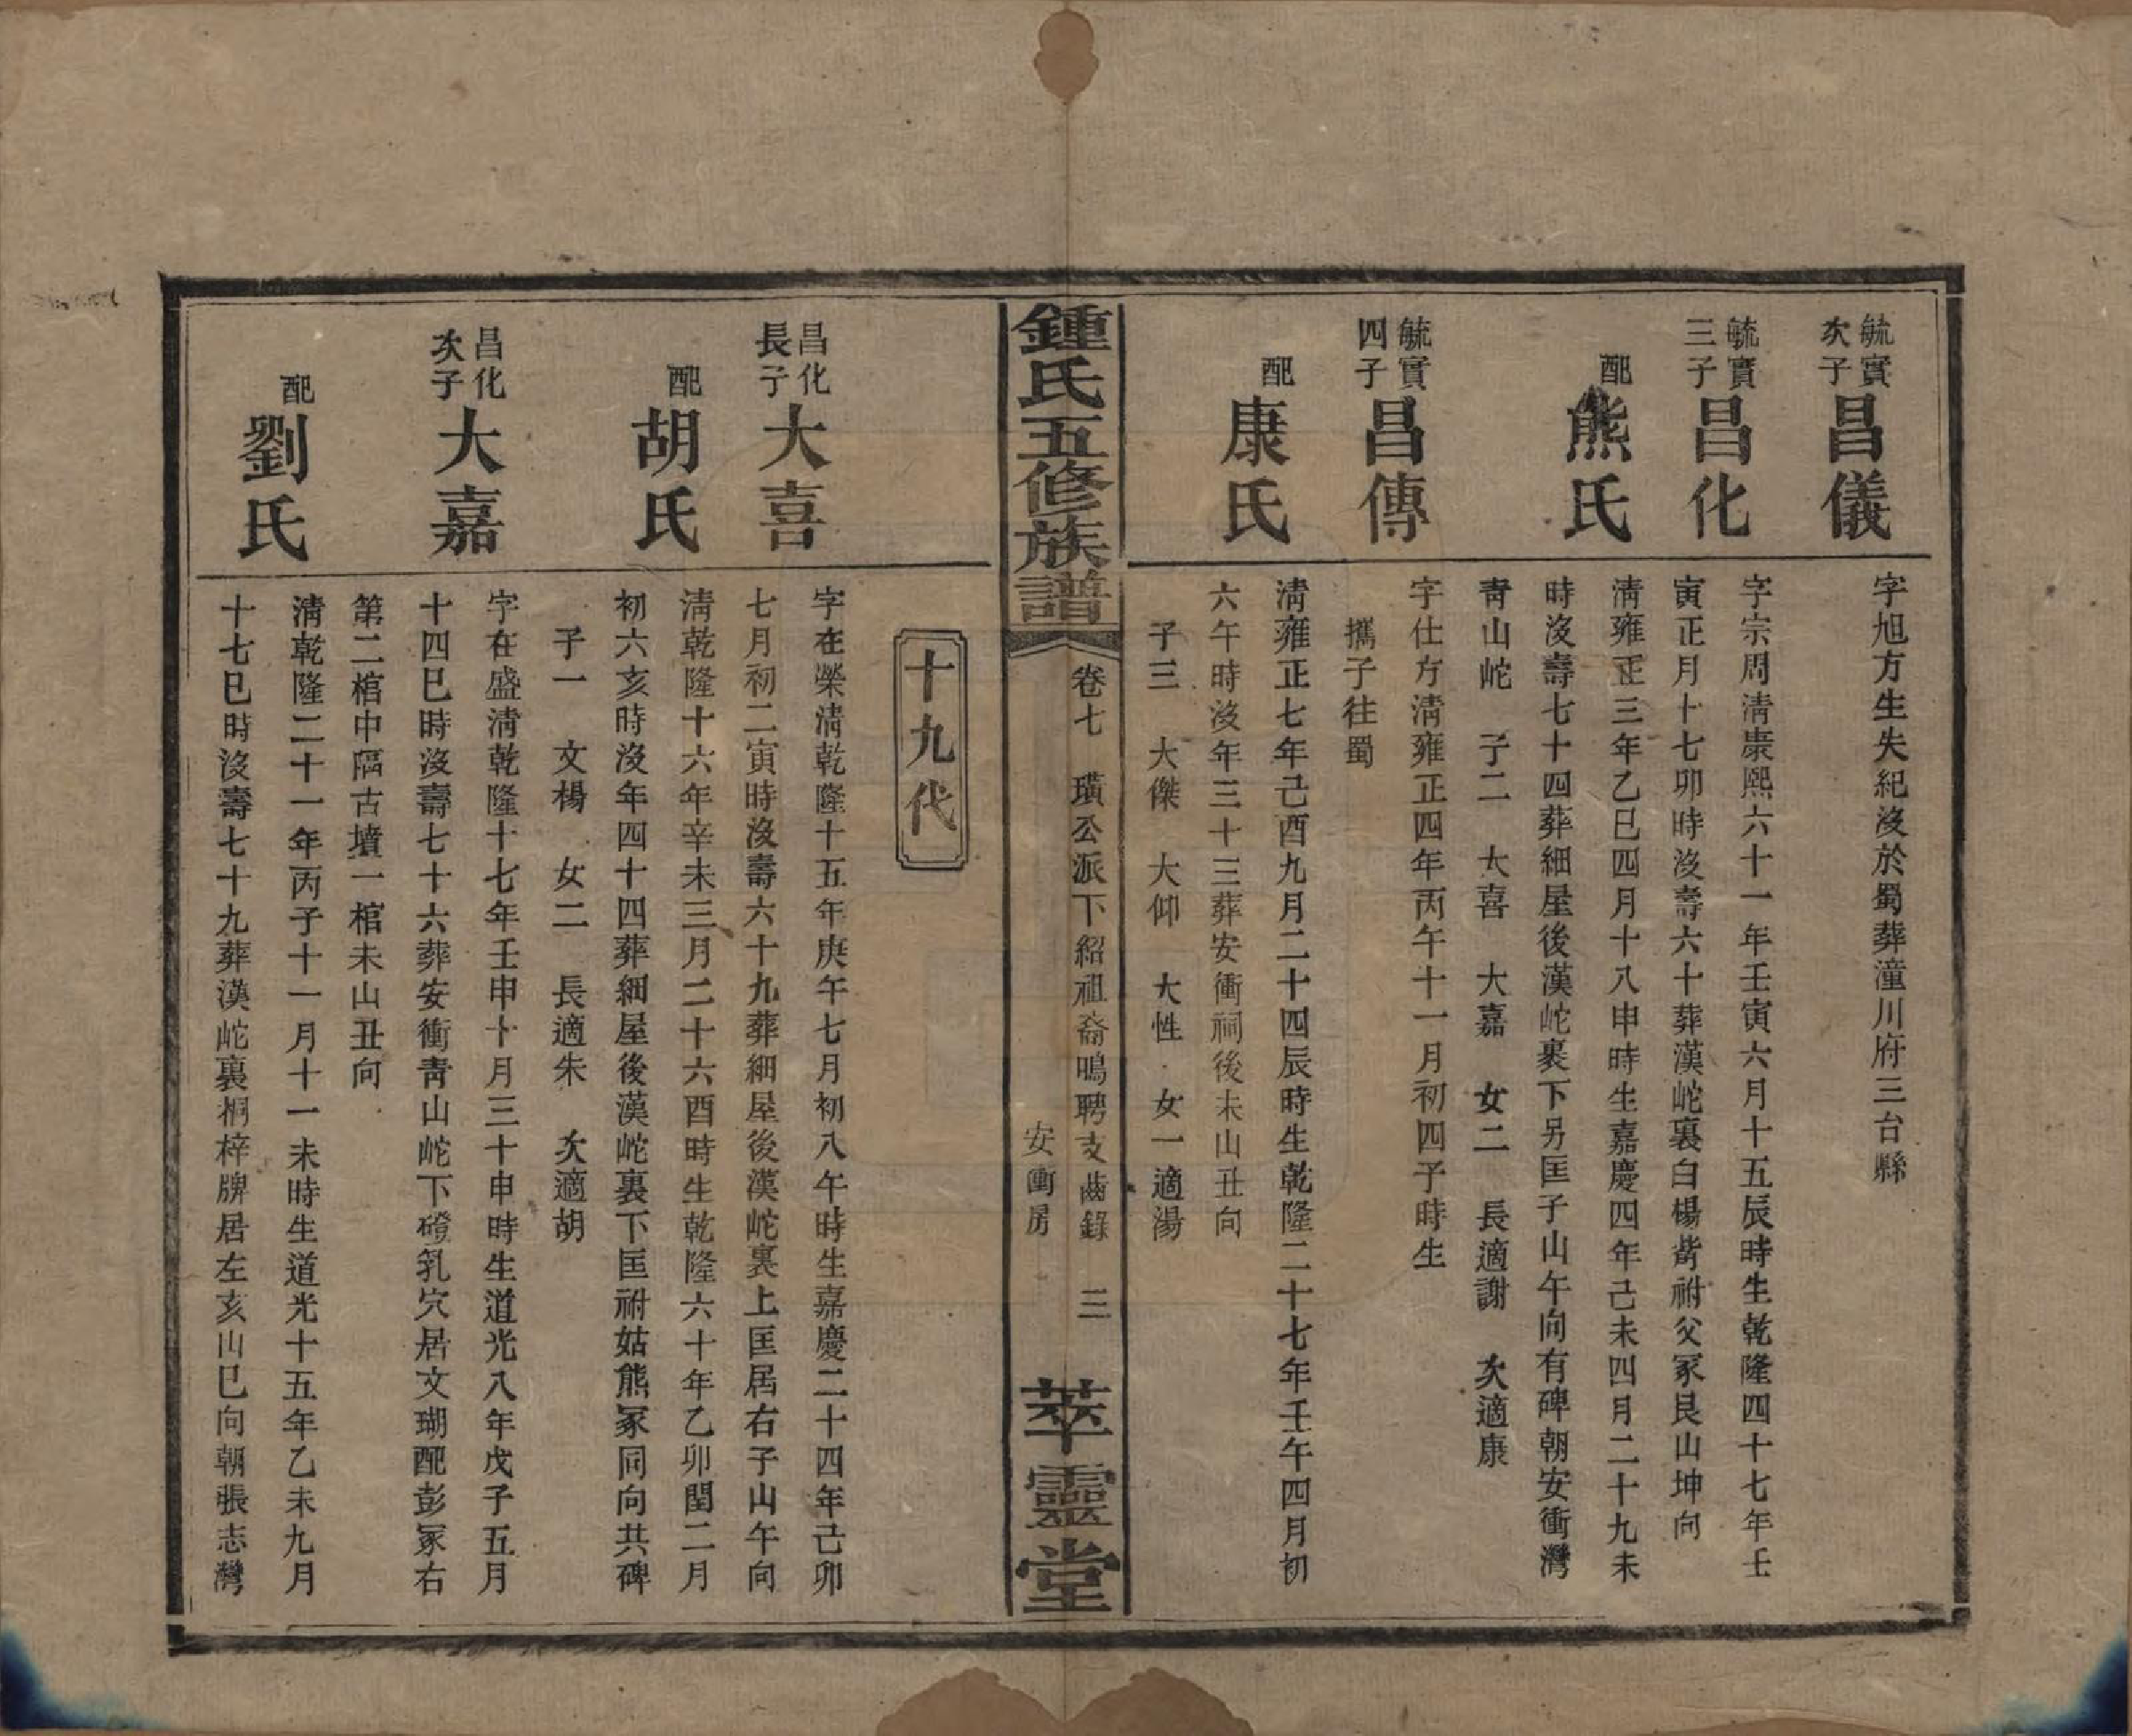 毓實
次子
昌儀
字旭方生失紀沒於蜀葬潼川府三台縣
毓實
三子
昌化
字宗周清康熙六十一年壬寅六月十五辰時生乾隆四十七年壬
寅正月十七卯時沒壽六十葬漢岮裏白楊背祔父冢艮山坤向
配
熊氏
清雍正三年乙巳四月十八申時生嘉慶四年己未四月二十九未
時沒壽七十四葬細屋後漢岮裏下另匡子山午向有碑朝安衝灣
靑山岮 子二 大喜 大嘉 女二 長適謝 次適康
毓實
四子
昌傳
字仕方清雍正四年丙午十一月初四子時生
攜子往蜀
配
康氏
清雍正七年己酉九月二十四辰時生乾隆二十七年壬午四月初
六午時沒年三十三葬安衝祠後未山丑向
子三 大傑 大仰 大性 女一適湯
鍾氏五修族譜
卷七 璜公派下紹祖裔鳴聘支齒錄 三
安衝房
萃靈堂
十九代
昌化
長子
大喜
字在榮清乾隆十五年庚午七月初八午時生嘉慶二十四年己卯
七月初二寅時沒壽六十九葬細屋後漢岮裏上匡居右子山午向
配
胡氏
清乾隆十六年辛未三月二十六酉時生乾隆六十年乙卯閏二月
初六亥時沒年四十四葬細屋後漢岮裏下匡祔姑熊冢同向共碑
子一 文楊 女二 長適朱 次適胡
昌化
次子
大嘉
字在盛清乾隆十七年壬申十月三十申時生道光八年戊子五月
十四巳時沒壽七十六葬安衝靑山岮下磴乳穴居文瑚配彭冢右
第二棺中隔古墳一棺未山丑向
配
劉氏
清乾隆二十一年丙子十一月十一未時生道光十五年乙未九月
十七巳時沒壽七十九葬漢岮裏桐梓牌居左亥山巳向朝張志灣